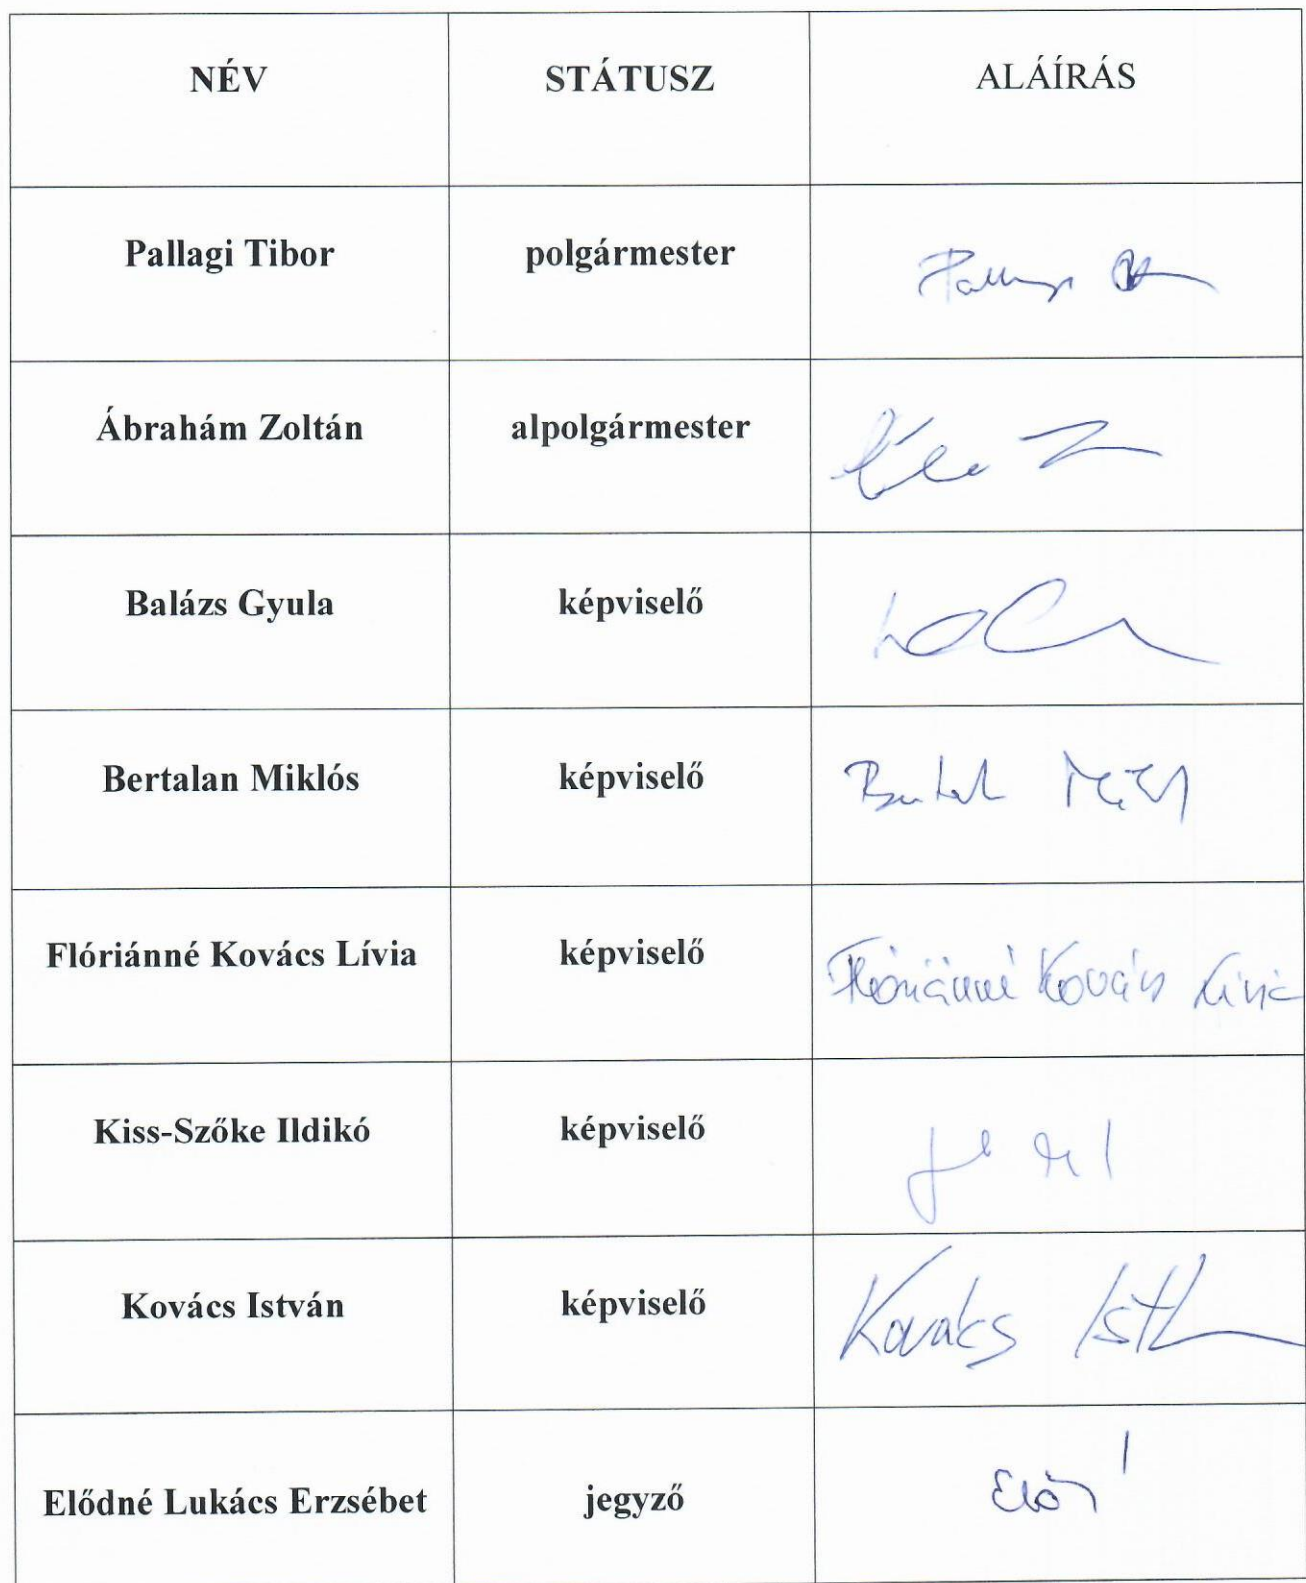 NÉV STÁTUSZ ALÁÍRÁS
Pallagi Tibor polgármester Pallagi
Ábrahám Zoltán alpolgármester
Balázs Gyula képviselő
Bertalan Miklós képviselő
Flóriánné Kovács Lívia képviselő Flóriánné Kovács Lívia
Kiss-Szőke Ildikó képviselő
Kovács István képviselő Kovács
Elődné Lukács Erzsébet jegyző